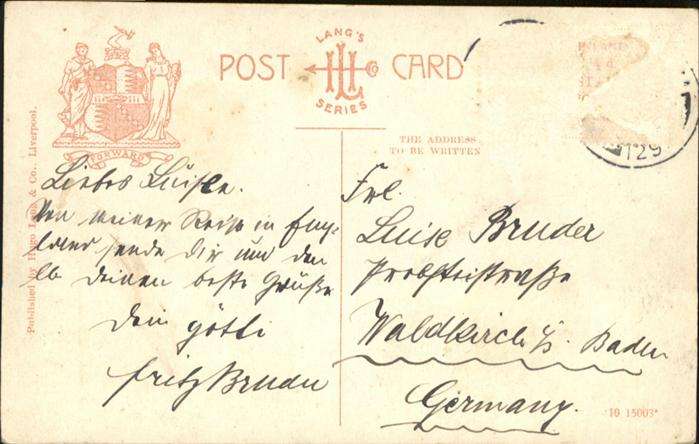 POST CARD
LANG'S
HL
SERIES
FORWARD
THE ADDRESS
TO BE WRITTEN
129
Published by Hugo Lang & Co., Liverpool.
Liebes Luisle.
Von meiner Reise in Eng-
land sende Dir und den
lb deinen beste Grüße
Dein götti
Fritz Bruder
Frl.
Luise Bruder
Probsteistraße
Waldkirch i/s. Baden
Germany.
10 15003